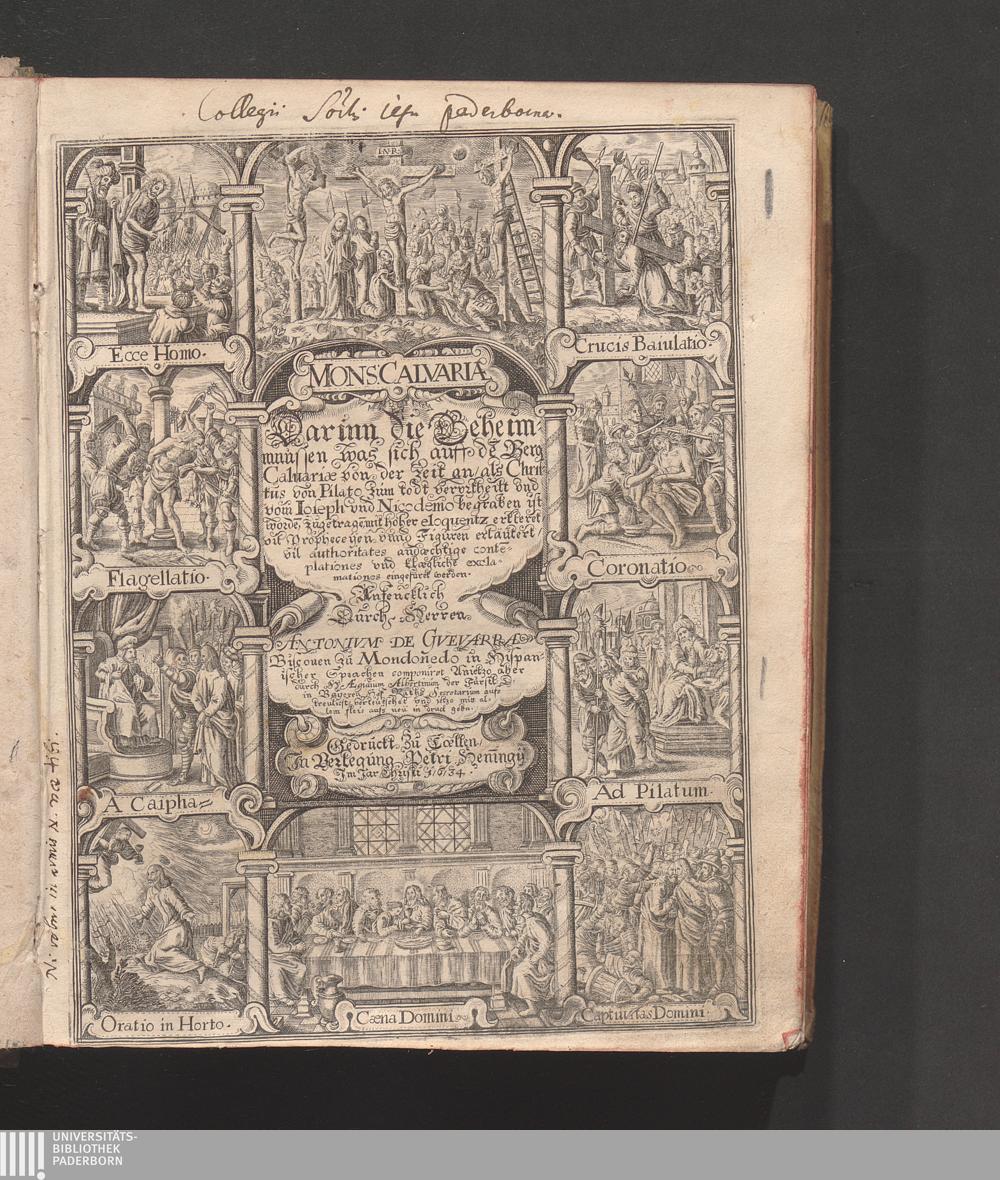 Collegii Soc̃tis iesu paderbornæ.
I.N.R.I.
Ecce Homo.
Crucis Baiulatio.
MONS CALVARIÆ
Darinn die Geheim-
nüssen was sich auff dẽ Berg
Caluariæ von der Zeit an/ als Chris-
tus von Pilato zum todt vervrtheilt vnd
vom Ioseph vnd Nicodemo begraben ist
wordẽ, zůgetragẽ mit hoher eloquentz erkleret
vil Propheceyen vnnd Figuren erläutert
vil authoritates andæchtige conte-
plationes vnd klægliche excla-
mationes eingefürt werden.
Flagellatio.
Coronatio
Anfencklich
Durch Herren
ANTONIVM DE GVEVARRA
Biscouen zů Mondoñedo in Hispan-
ischer Sprachen componirt Anietzo aber
durch Æegidium Albertinum der Fürstl. D
in Bayeren Hoff Raths Secretarium aufs
treulichst verteutschet vnd ietzo mit al-
lem fleis aufs neu in druck gebn.
Gedruckt Zů Cœllen/
In Verlegung Petri Henningij
Im Jar Christi 1634.
A Caipha
Ad Pilatum.
Oratio in Horto.
Cæna Domini
Captiuitas Domini.
UNIVERSITÄTS-
BIBLIOTHEK
PADERBORN